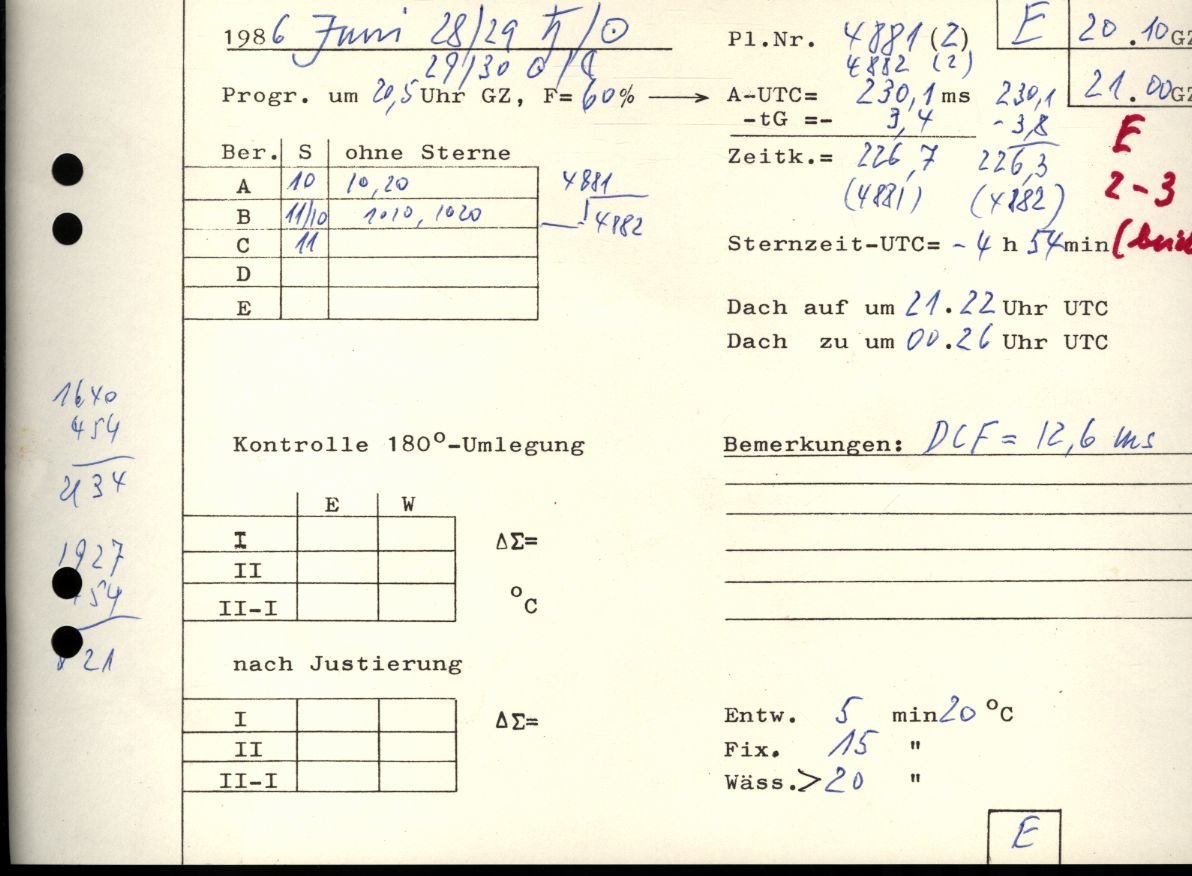 1986 Juni 28/29 ♄/☉
29/30 ☉/☾
Progr. um 20,5 Uhr GZ, F= 60% →
Pl.Nr. 4881 (2)
4882 (2)
A-UTC= 230,1 ms 230,1
-tG =- 3,4 -3,8
Zeitk.= 226,7 226,3
(4881) (4882)
E 20.10 GZ
21.00 GZ
E
2-3
Sternzeit-UTC= -4 h 54 min
Ber. S ohne Sterne
A 10 10,20
B 11/10 1010, 1020
C 11
D
E
4881
4882
Dach auf um 21.22 Uhr UTC
Dach zu um 00.26 Uhr UTC
1640
454
2134
1927
54
21
Kontrolle 180°-Umlegung
E W
I
II
II-I
ΔΣ=
°C
Bemerkungen: DCF = 12,6 ms
nach Justierung
I
II
II-I
ΔΣ=
Entw. 5 min 20 °C
Fix. 15 "
Wäss.> 20 "
E